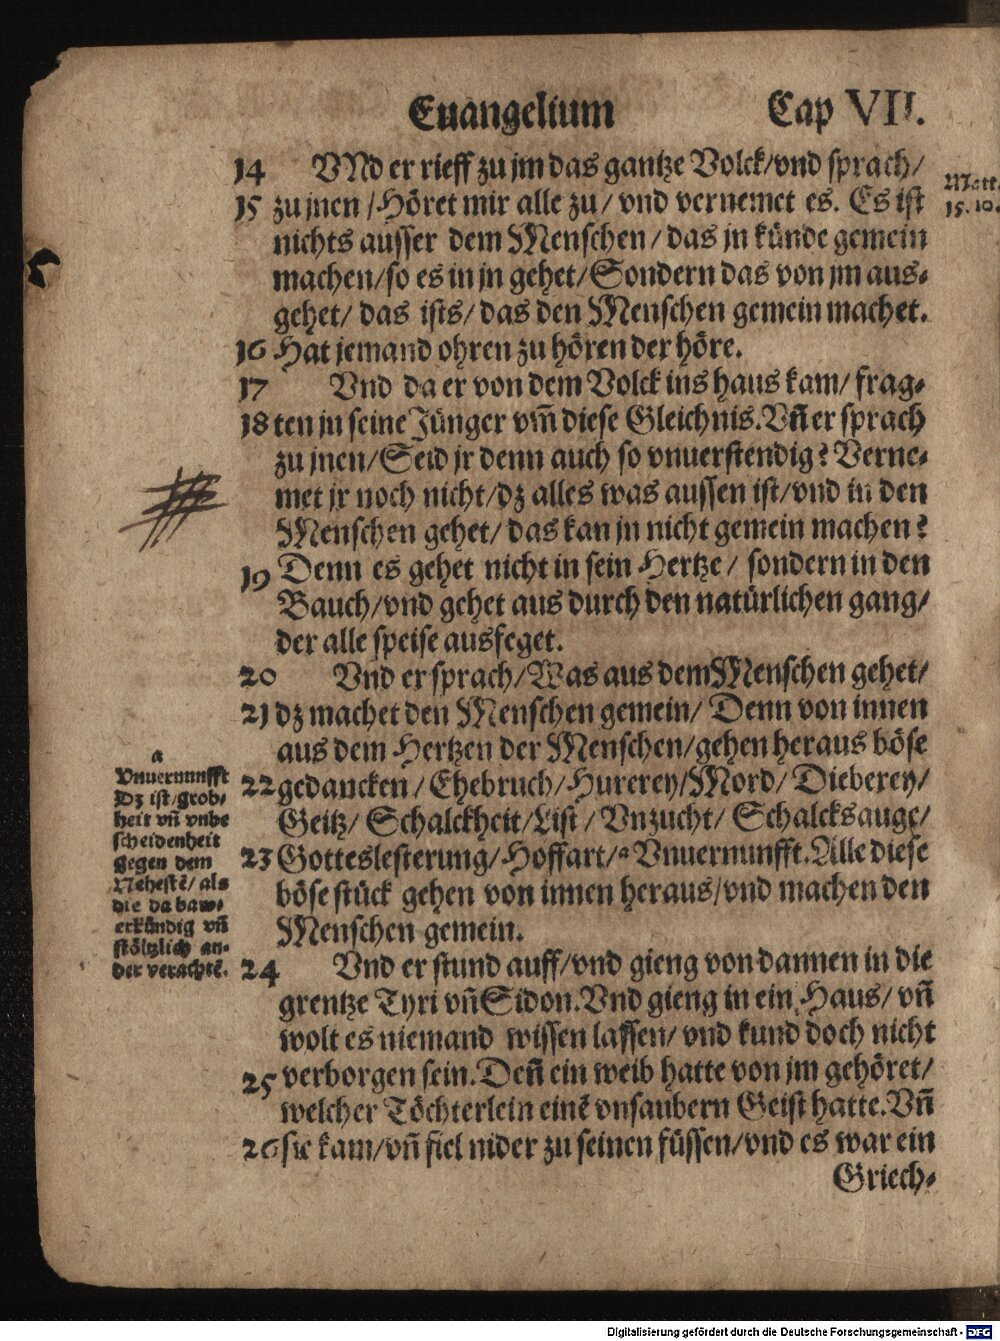 Euangelium Cap VII.
14 VNd er rieff zu jm das gantze Volck/vnd sprach/
Matt.
15 zu jnen/Höret mir alle zu/ vnd vernemet es. Es ist
15. 10.
nichts ausser dem Menschen/das jn künde gemein
machen/so es in jn gehet/Sondern das von jm aus-
gehet/ das ists/das den Menschen gemein machet.
16 Hat jemand ohren zu hören der höre.
17 Vnd da er von dem Volck ins haus kam/ frag-
18 ten jn seine Jünger vm̃ diese Gleichnis. Vñ er sprach
zu jnen/Seid jr denn auch so vnuerstendig? Verne-
met jr noch nicht/dz alles was aussen ist/vnd in den
Menschen gehet/ das kan jn nicht gemein machen?
19 Denn es gehet nicht in sein Hertze/ sondern in den
Bauch/vnd gehet aus durch den natürlichen gang/
der alle speise ausfeget.
20 Vnd er sprach/Was aus dem Menschen gehet/
21 dz machet den Menschen gemein/ Denn von innen
aus dem Hertzen der Menschen/gehen heraus böse
22 gedancken/ Ehebruch/Hurerey/Mord/ Dieberey/
Geitz/ Schalckheit/List/ Vnzucht/ Schalcksauge/
23 Gotteslesterung/Hoffart/ᵃ Vnuernunfft. Alle diese
böse stück gehen von innen heraus/vnd machen den
Menschen gemein.
a
Vnuernunfft
Dz ist/grob-
heit vñ vnbe
scheidenheit
gegen dem
Nehestē/als
die da baw-
erkündig vñ
stöltzlich an-
der verachtē.
24 Vnd er stund auff/vnd gieng von dannen in die
grentze Tyri vñ Sidon. Vnd gieng in ein Haus/ vñ
wolt es niemand wissen lassen/ vnd kund doch nicht
25 verborgen sein. Deñ ein weib hatte von jm gehöret/
welcher Töchterlein einē vnsaubern Geist hatte. Vñ
26 sie kam/vñ fiel nider zu seinen füssen/vnd es war ein
Griech-
Digitalisierung gefördert durch die Deutsche Forschungsgemeinschaft - DFG